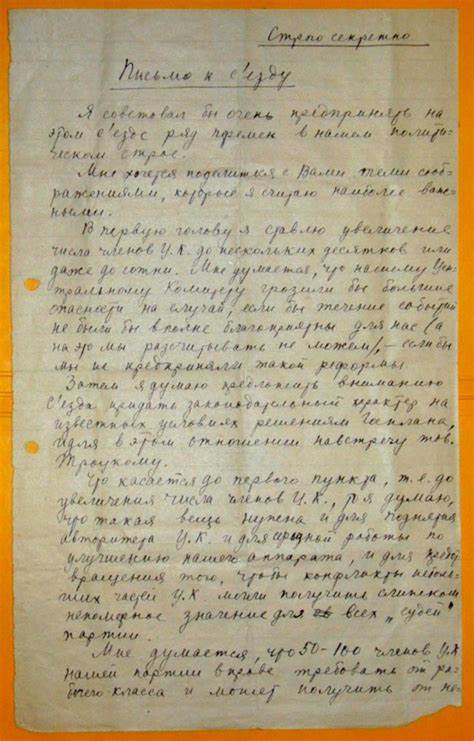 Строго секретно
Письмо к с'езду
Я советовал бы очень предпринять на
этом с'езде ряд перемен в нашем полити-
ческом строе.
Мне хочется поделиться с Вами теми сооб-
ражениями, которые я считаю наиболее важ-
ными.
В первую голову я ставлю увеличение
числа членов Ц.К. до нескольких десятков или
даже до сотни. Мне думается, что нашему Цен-
тральному Комитету грозили бы большие
опасности на случай, если бы течение событий
не было бы вполне благоприятны для нас (а
на это мы рассчитывать не можем), – если бы
мы не предприняли такой реформы.
Затем я думаю предложить вниманию
с'езда придать законодательный характер на
известных условиях решениям Госплана,
идя в этом отношении навстречу тов.
Троцкому.
Что касается до первого пункта, т.е. до
увеличения числа членов Ц.К., то я думаю,
что такая вещь нужна и для поднятия
авторитета Ц.К. и для серьезной работы по
улучшению нашего аппарата, и для предот-
вращения того, чтобы конфликты неболь-
ших частей Ц.К. могли получить слишком
непомерное значение для всех „судеб"
партии.
Мне думается, что 50-100 членов Ц.К.
нашей партии вправе требовать от ра-
бочего класса и может получить от не-